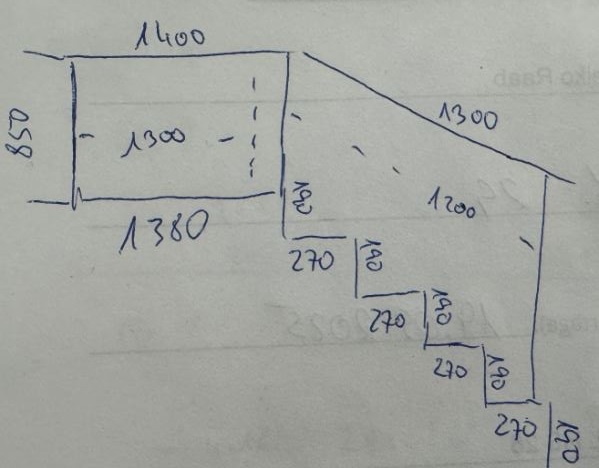 1400
850
1300
1380
1300
1200
190
270
190
270
190
270
190
270
190